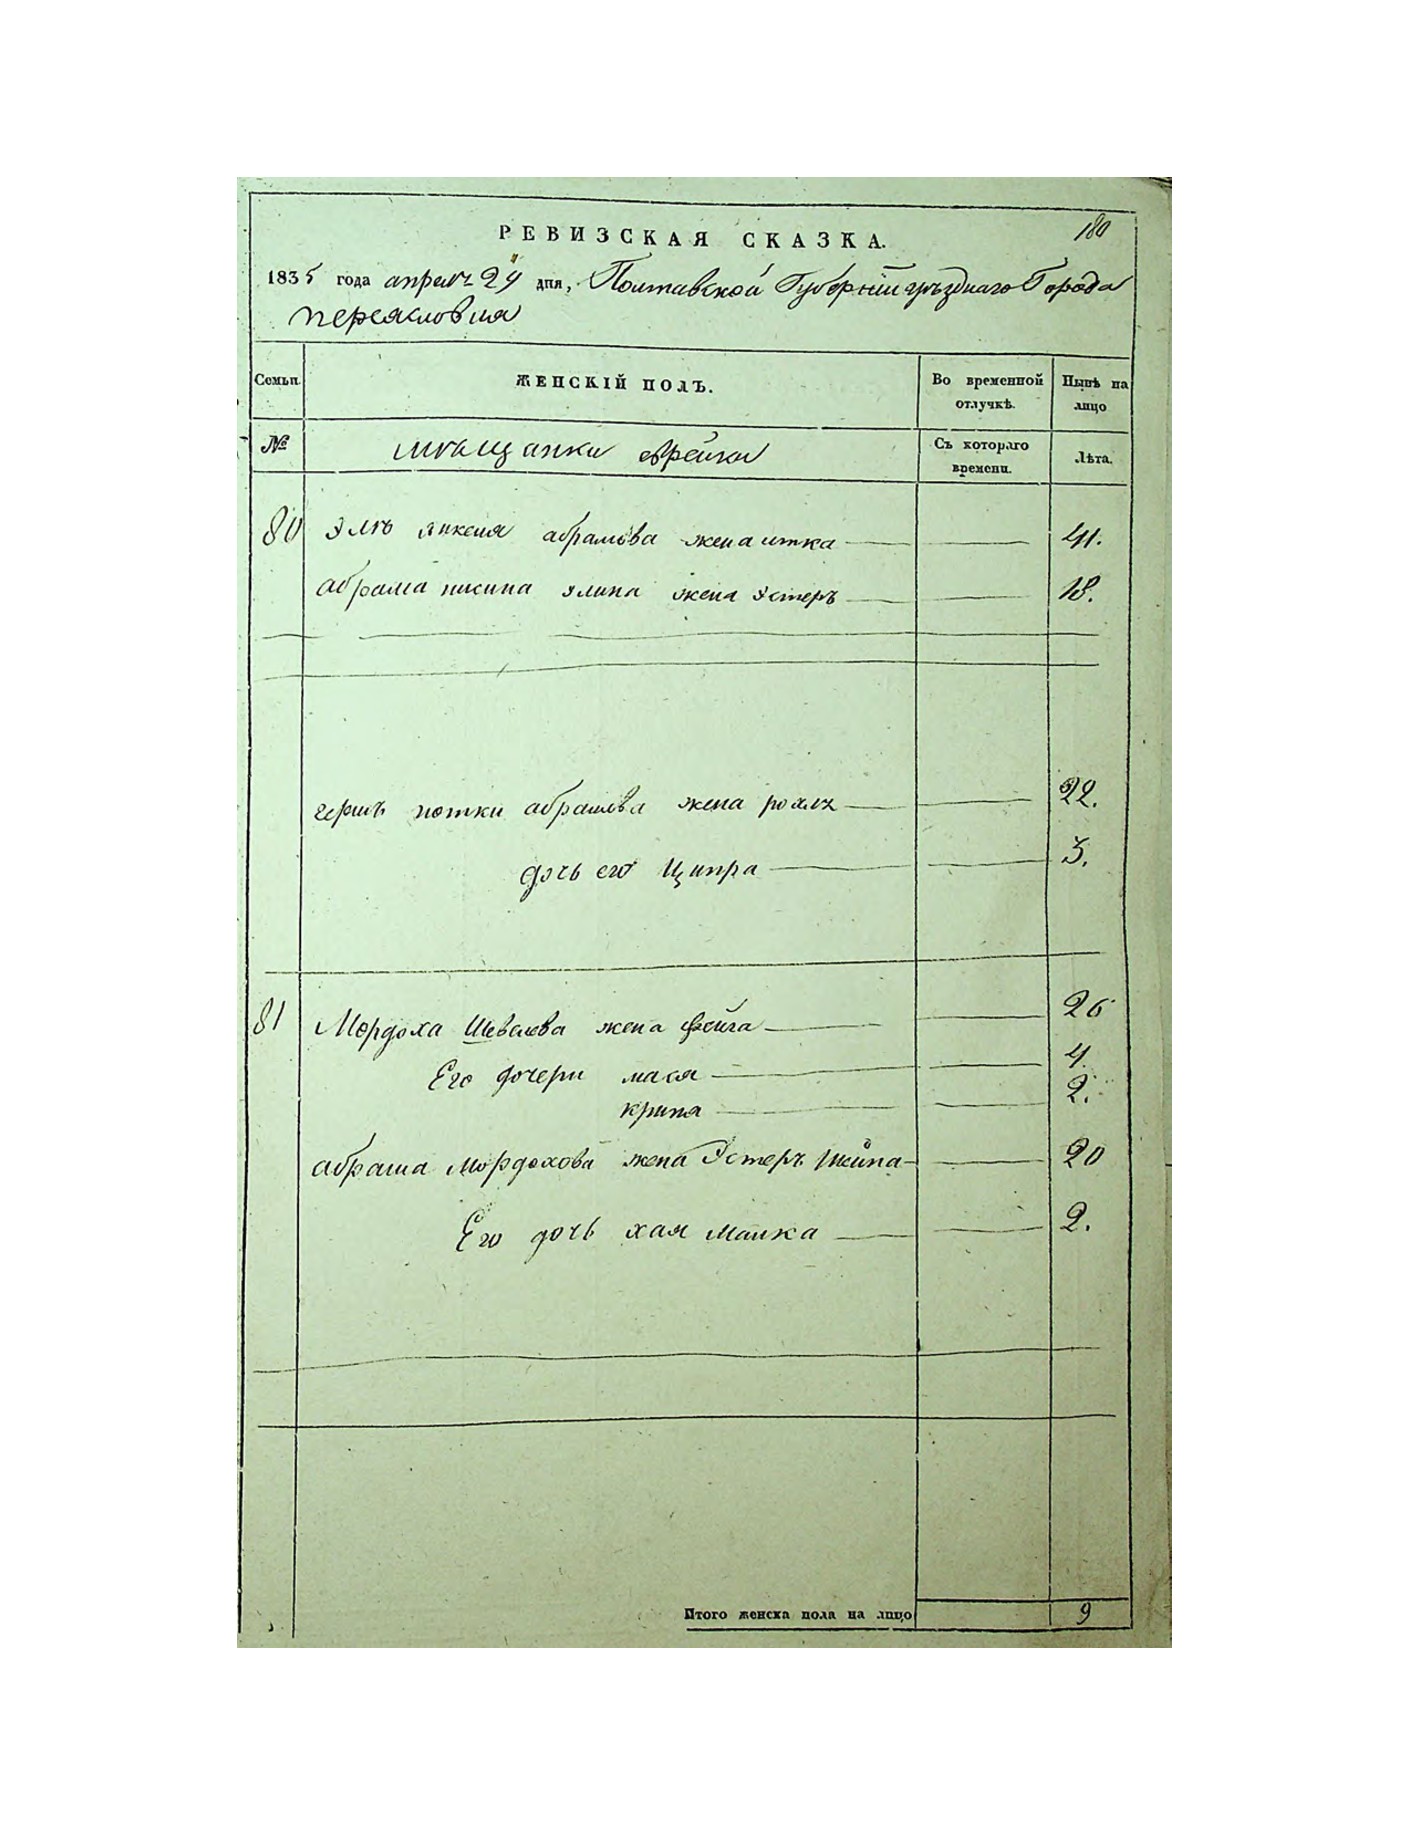 180
РЕВИЗСКАЯ СКАЗКА.
1835 года апреля 24 дня, Полтавской Губернии уѣзднаго Города
переяславля
Семьи. ЖЕНСКІЙ ПОЛЪ. Во временной отлучкѣ. Нынѣ на лицо
№ мѣщанки еврейки Съ котораго времени. Лѣта.
80 абрамова жена итка 41.
абрама нисина элина жена Эстеръ 18.
гершъ абрамова жена рохля 22.
дочь его Ципра 3.
81 Мордоха Шевелева жена фейга 26
Его дочери мася 4.
крина 2.
абраша мордохова жена Эстеръ шейна 20
Его дочь хая малка 2.
Итого женска пола на лицо 9